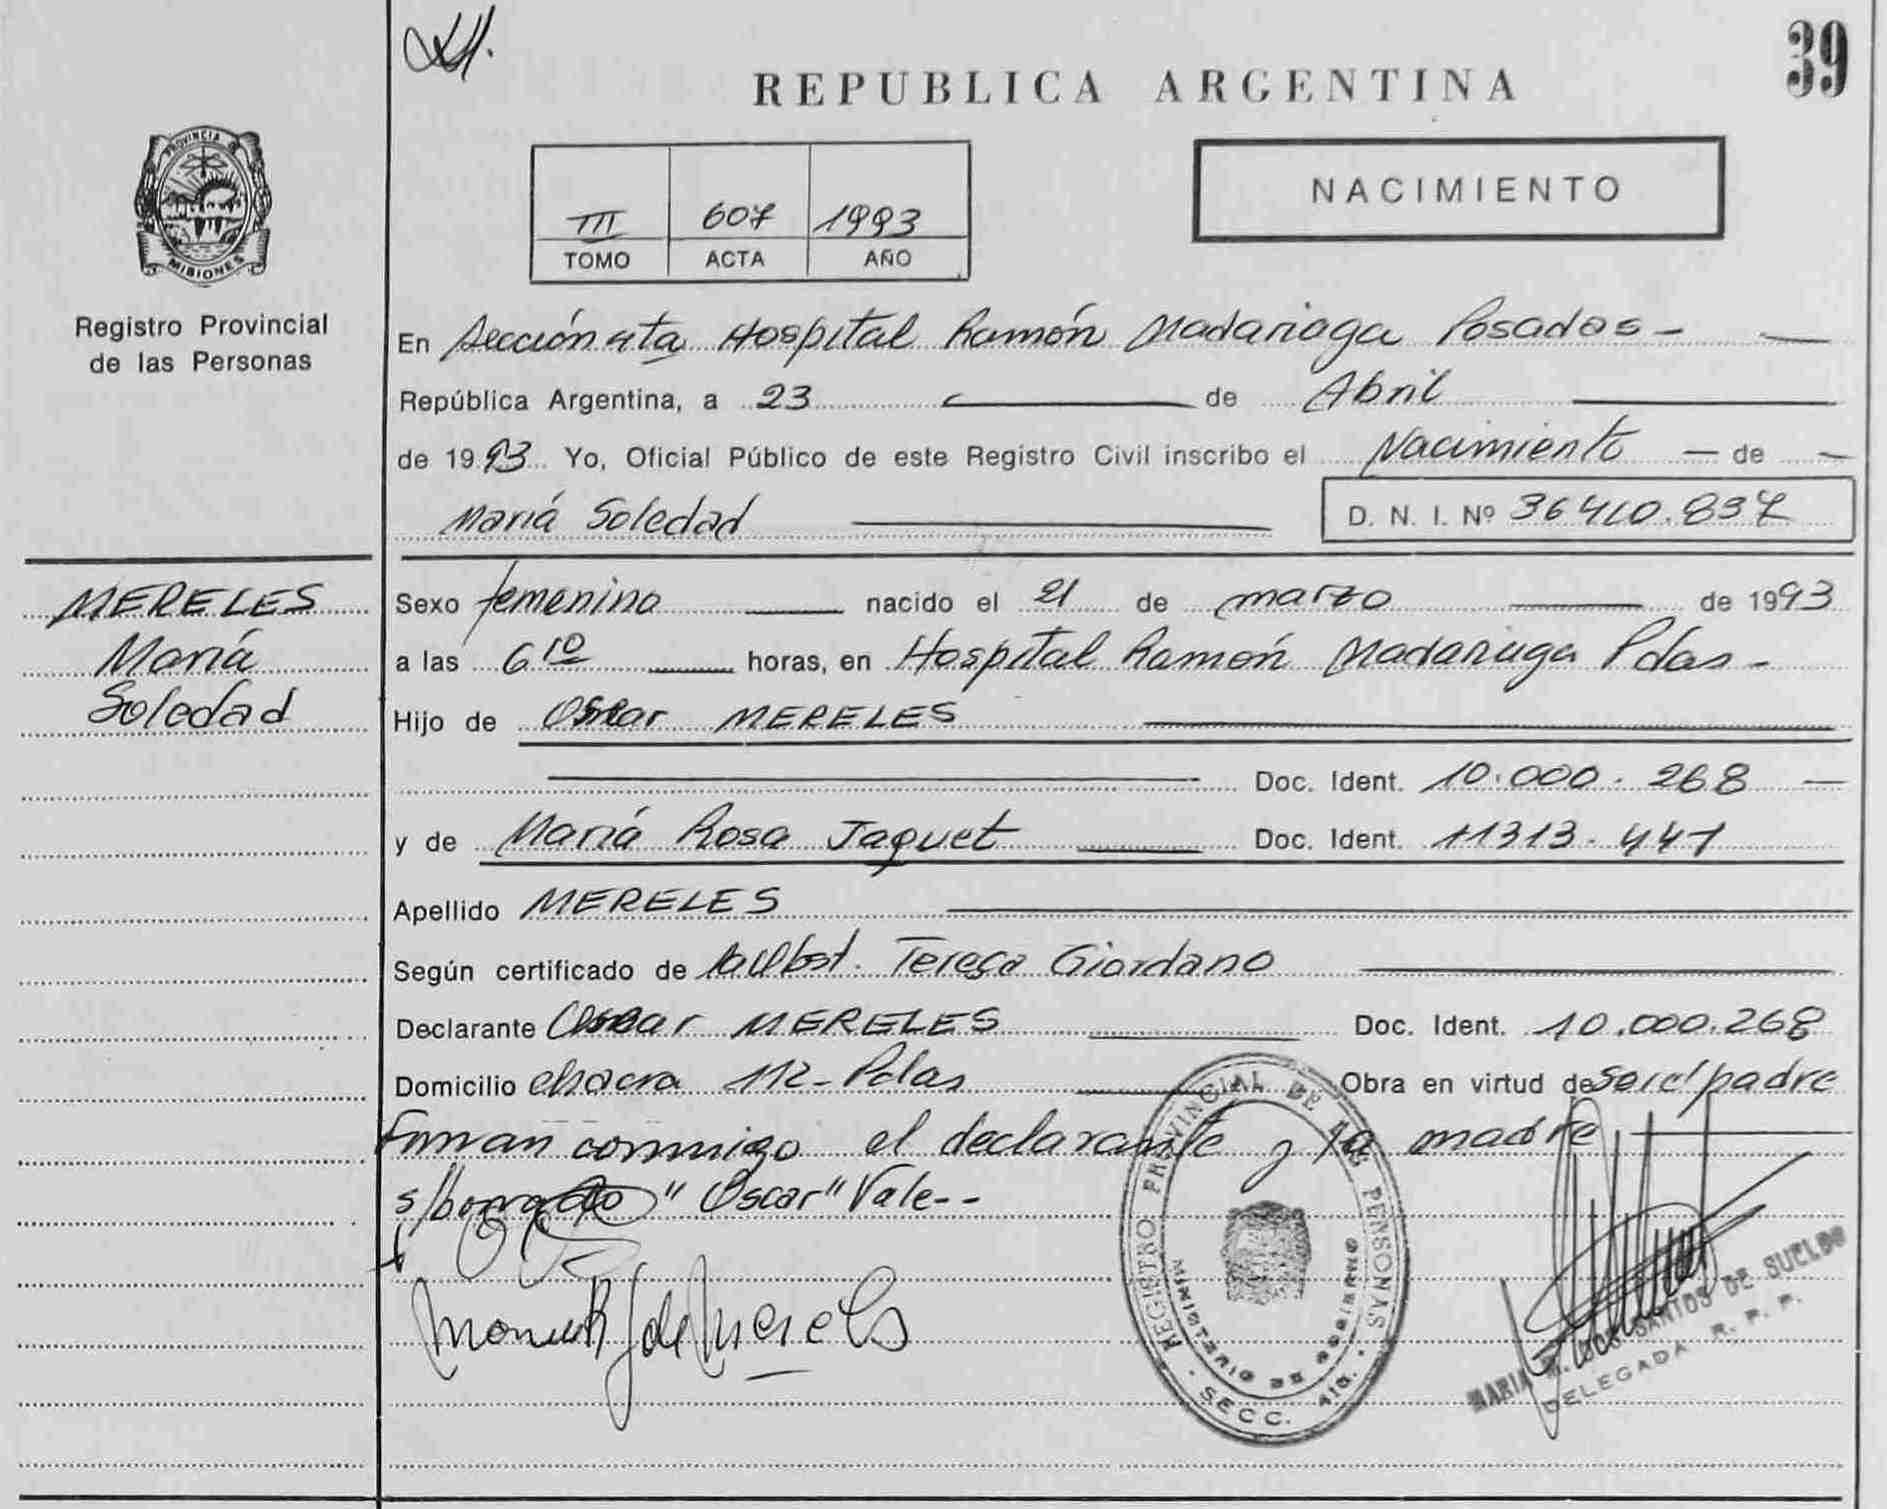 39
REPUBLICA ARGENTINA
PROVINCIA DE
MISIONES
Registro Provincial
de las Personas
III 607 1993
TOMO ACTA AÑO
NACIMIENTO
En Sección 4ta Hospital Ramón Madariaga Posadas -
República Argentina, a 23 de Abril
de 1993 Yo, Oficial Público de este Registro Civil inscribo el Nacimiento de
María Soledad
D. N. I. Nº 36410.837
MERELES
María
Soledad
Sexo femenino nacido el 21 de marzo de 1993
a las 6 10 horas, en Hospital Ramón Madariaga Pdas -
Hijo de Oscar MERELES
Doc. Ident. 10.000.268
y de María Rosa Jaquet Doc. Ident. 11313.441
Apellido MERELES
Según certificado de Teresa Giordano
Declarante Oscar MERELES Doc. Ident. 10.000.268
Domicilio chacra 112 - Pdas Obra en virtud de ser el padre
Firman conmigo el declarante y la madre
s/borrado "Oscar" Vale--
REGISTRO PROVINCIAL DE LAS PERSONAS
MINISTERIO DE GOBIERNO
SECC. 4ta.
MARIA DOS SANTOS DE SUELDO
DELEGADA R. P. P.